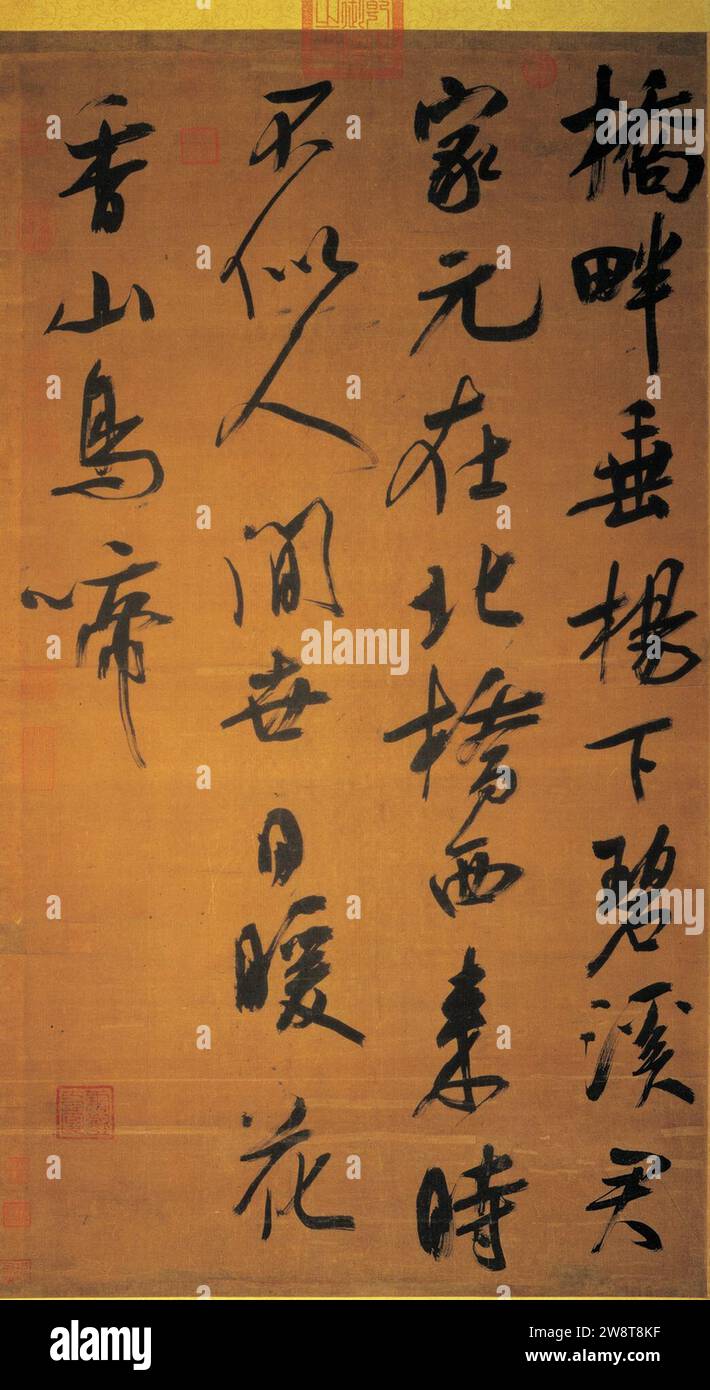 橋畔垂楊下碧溪君
家元在北橋西来時
不似人間世日暖花
香山鳥啼
alamy
a
Image ID: 2W8T8KF
www.alamy.com